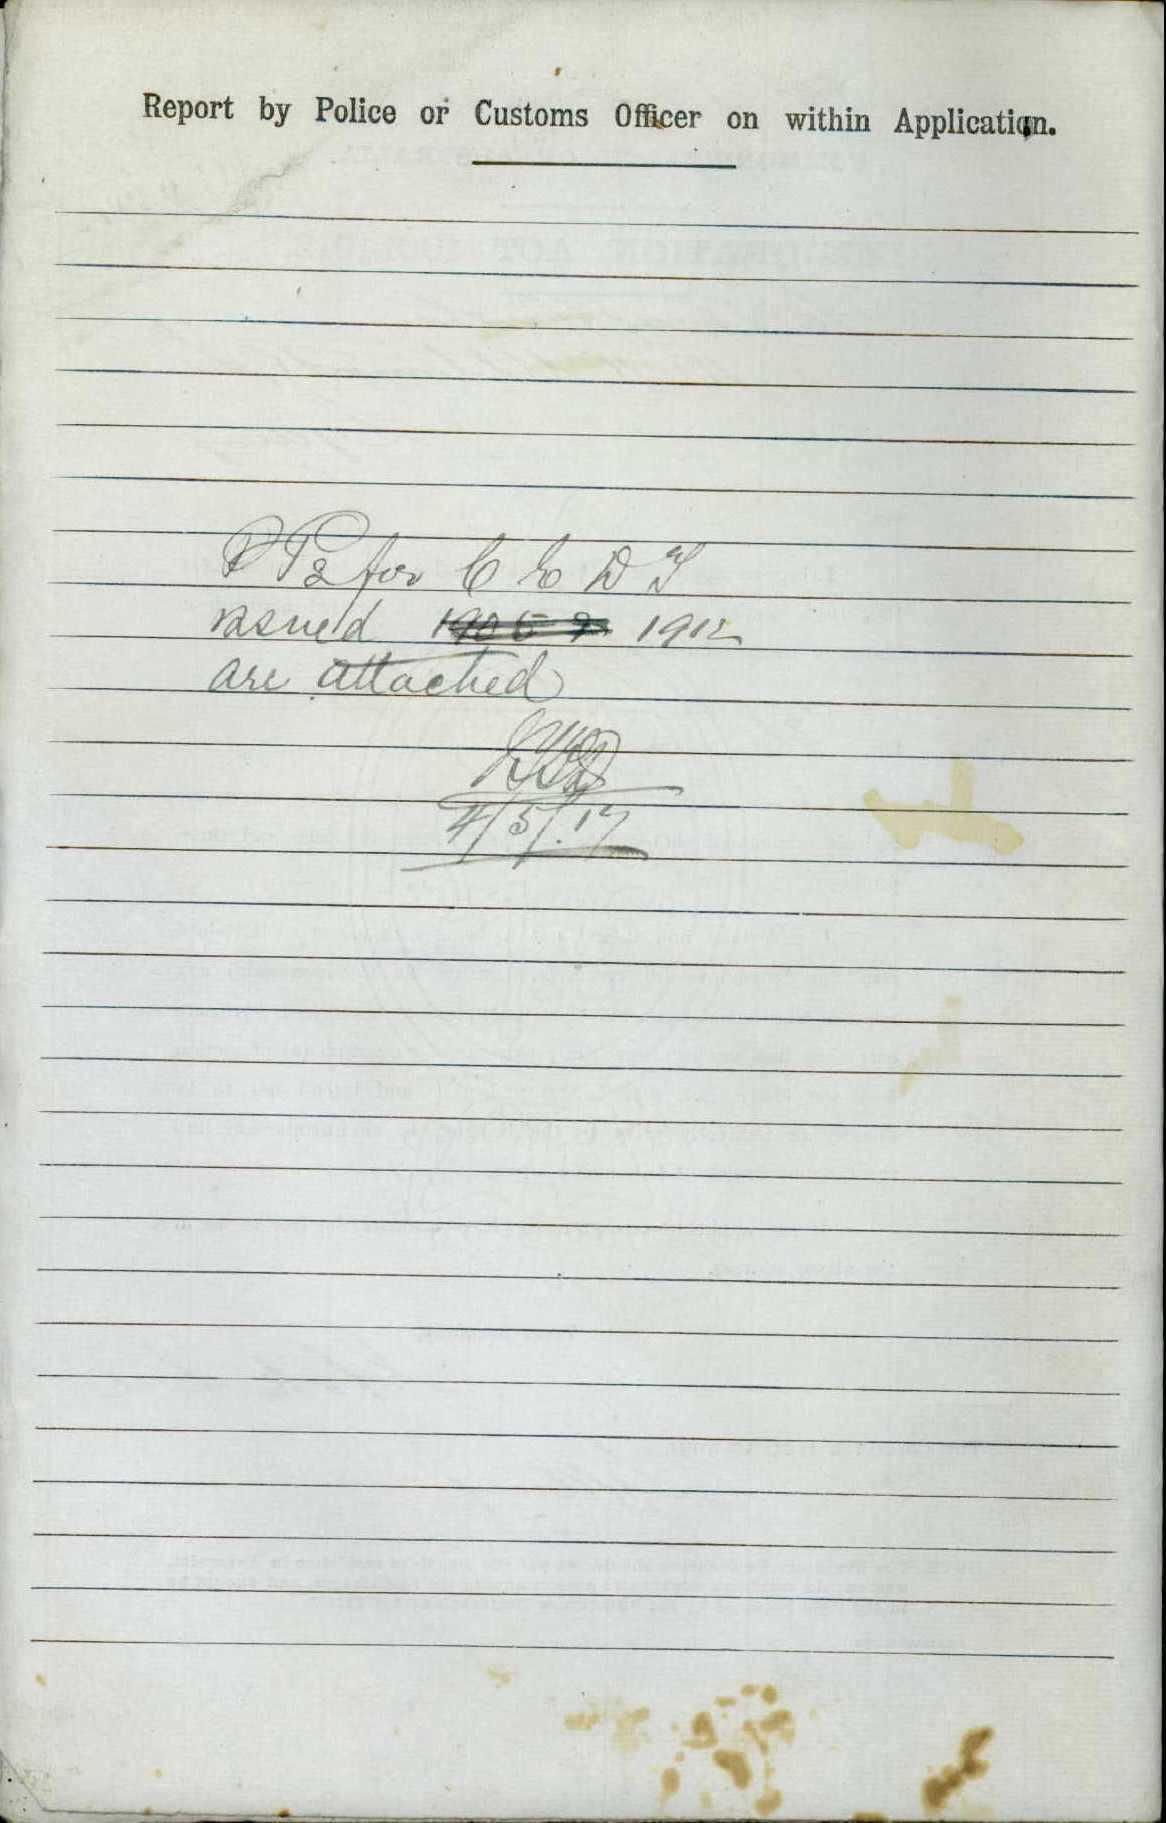 Report by Police or Customs Officer on within Application.
P Ps for C E D T
issued 1912
are attached
4/5/17